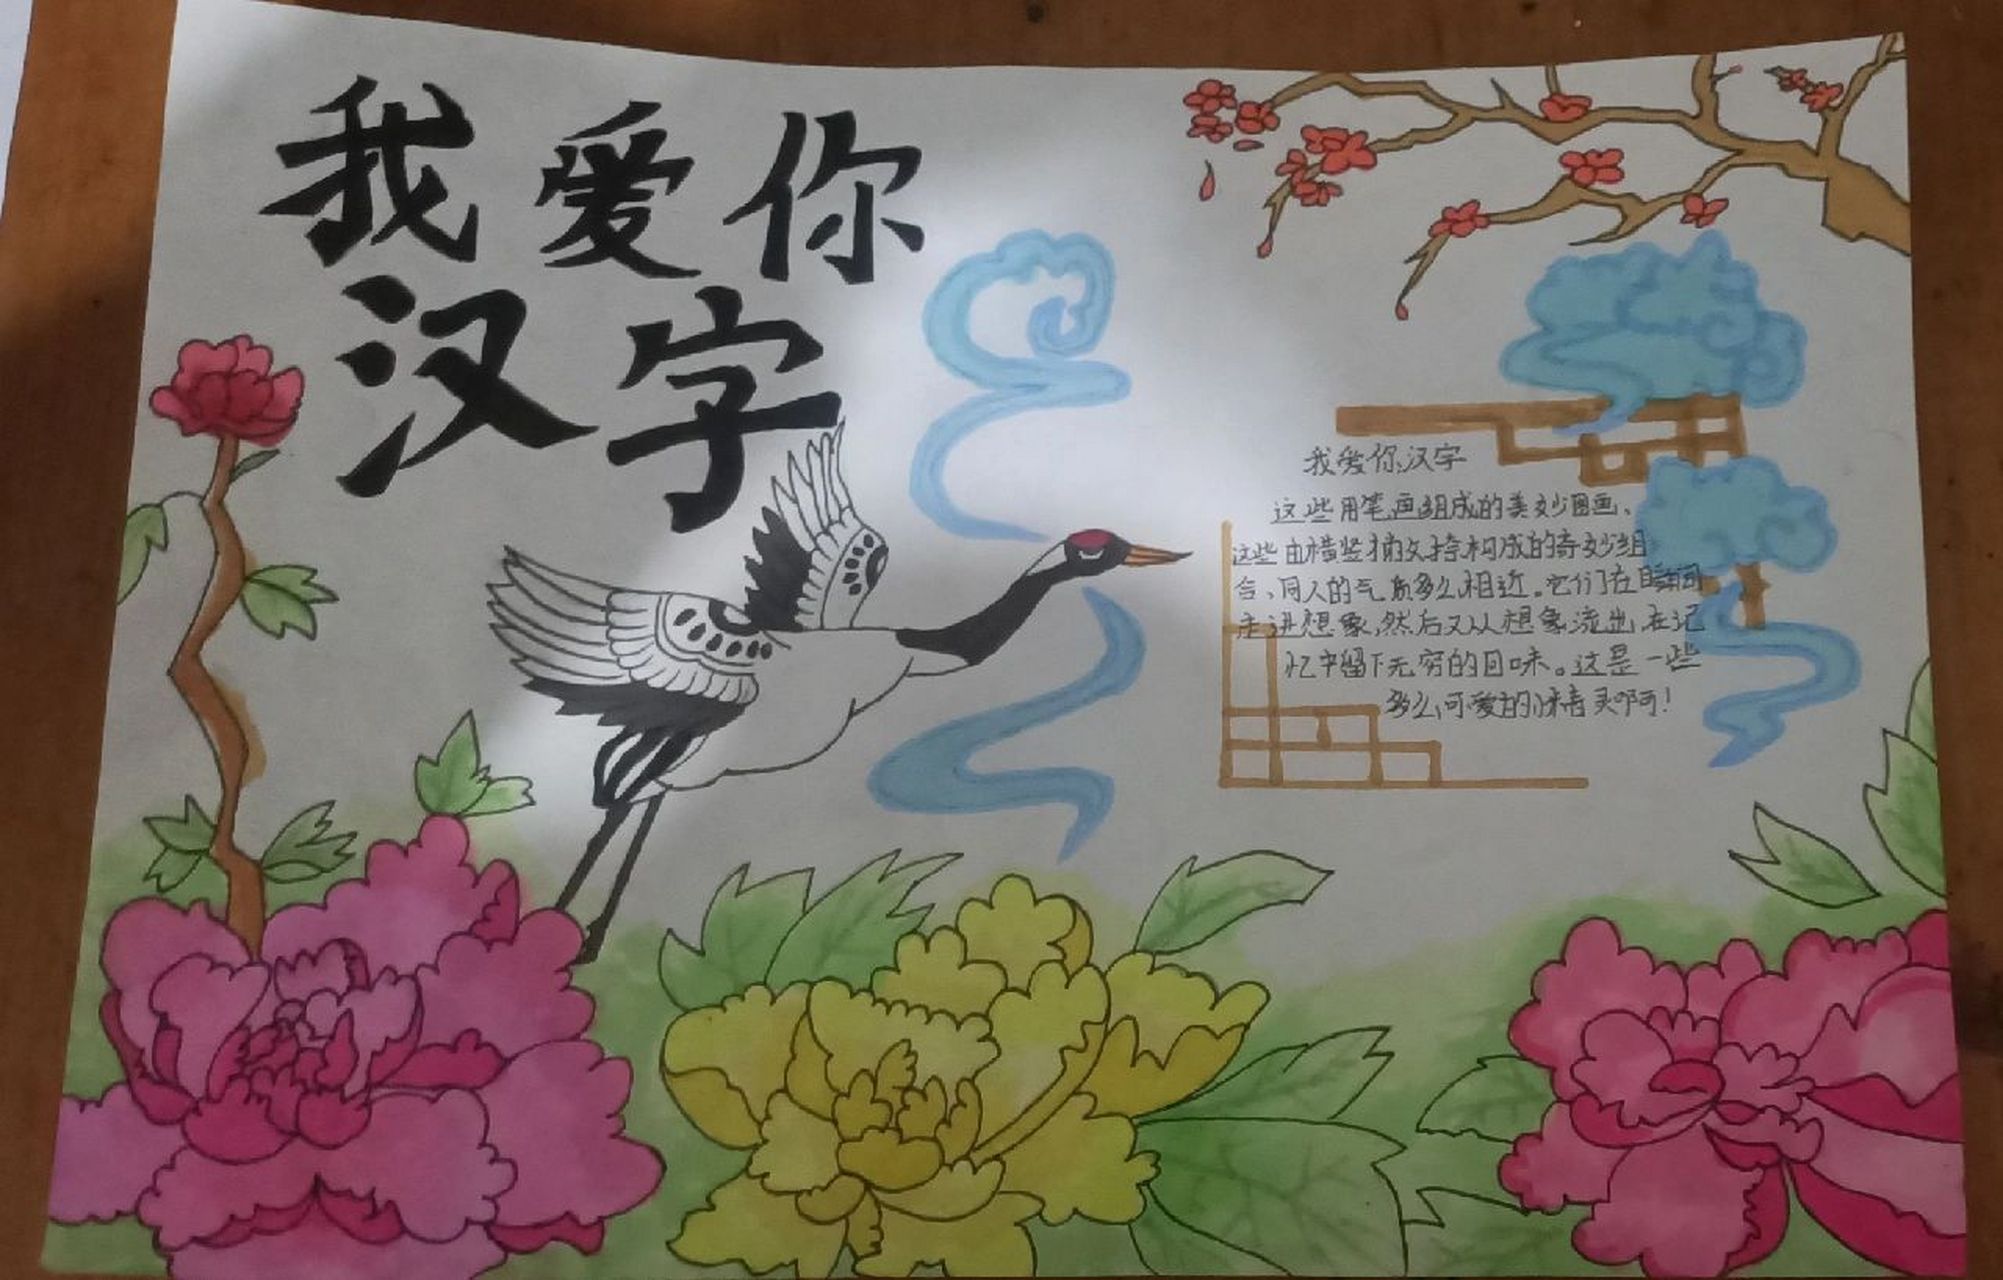 我爱你
汉字
我爱你,汉字
这些用笔画组成的美妙图画、
这些由横竖撇交捺构成的奇妙组
合、同人的气质多么相近。它们在瞬间
走进想象,然后又从想象流出,在记
忆中留下无穷的回味。这是一些
多么可爱的小精灵啊!